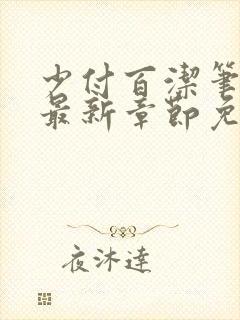 少付百潔筆
最新章節免
夜沐達